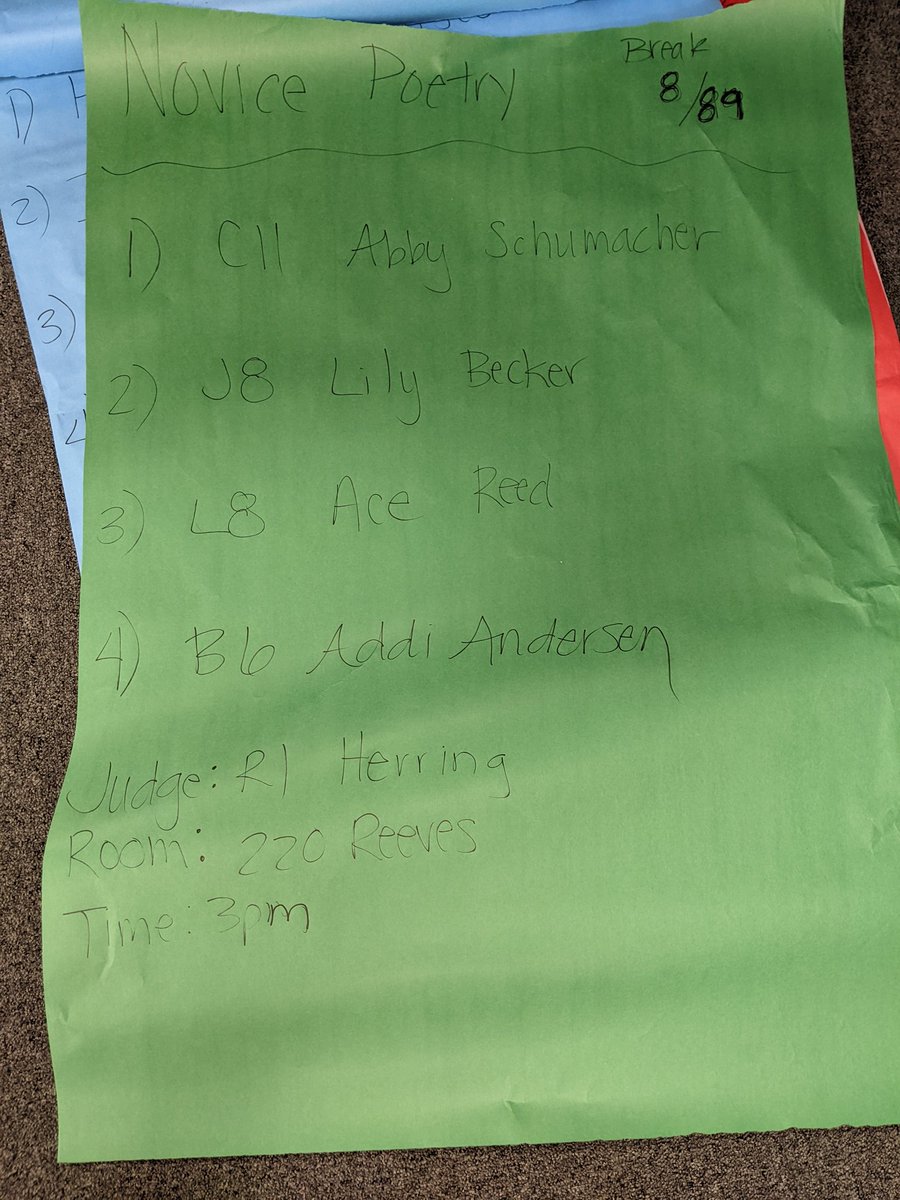 Novice Poetry
Break
8/89
1) C11 Abby Schumacher
2) J8 Lily Becker
3) L8 Ace Reed
4) B6 Addi Andersen
Judge: R1 Herring
Room: 220 Reeves
Time: 3pm
1) H
2)
3)
4